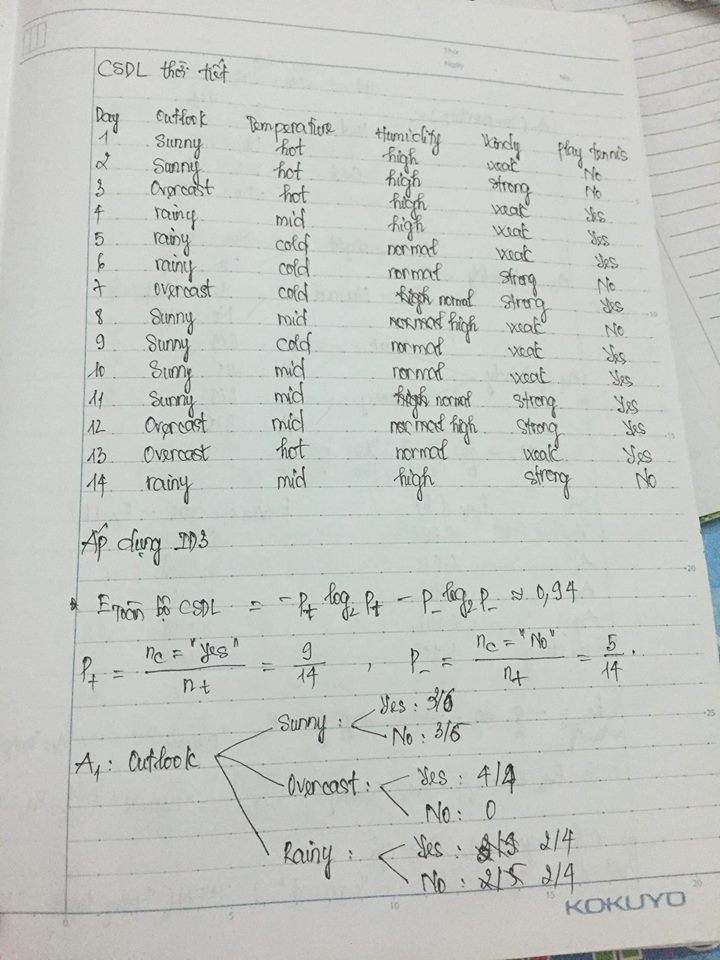 Thứ
Ngày
No.
CSDL thời tiết
Day Outlook Temperature Humidity Windy Play tennis
1 Sunny hot high weak No
2 Sunny hot high strong No
3 Overcast hot high weak Yes
4 rainy mid high weak Yes
5 rainy cold normal weak Yes
6 rainy cold normal strong No
7 overcast cold normal strong Yes
8 Sunny mid high weak No
9 Sunny cold normal weak Yes
10 Sunny mid normal weak Yes
11 Sunny mid normal strong Yes
12 Overcast mid high strong Yes
13 Overcast hot normal weak Yes
14 rainy mid high strong No
Áp dụng ID3
* E toàn bộ CSDL = -P+ log2 P+ - P- log2 P- ≈ 0,94
P+ = nc = "Yes" / nt = 9/14 , P- = nc = "No" / nt = 5/14 .
Sunny : Yes : 2/5
No : 3/5
A1 : Outlook
Overcast : Yes : 4/4
No : 0
Rainy : Yes : 2/4
No : 2/4
KOKUYO
0 5 10 15 20
10
15
20
25